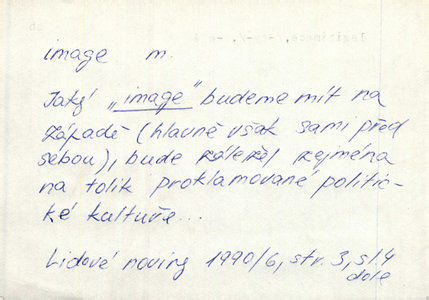 image m.
Jaký „image" budeme mít na
západě (hlavně však sami před
sebou), bude záležet zejména
na tolik proklamované politic-
ké kultuře...
Lidové noviny 1990/6, str. 3, sl. 4
dole